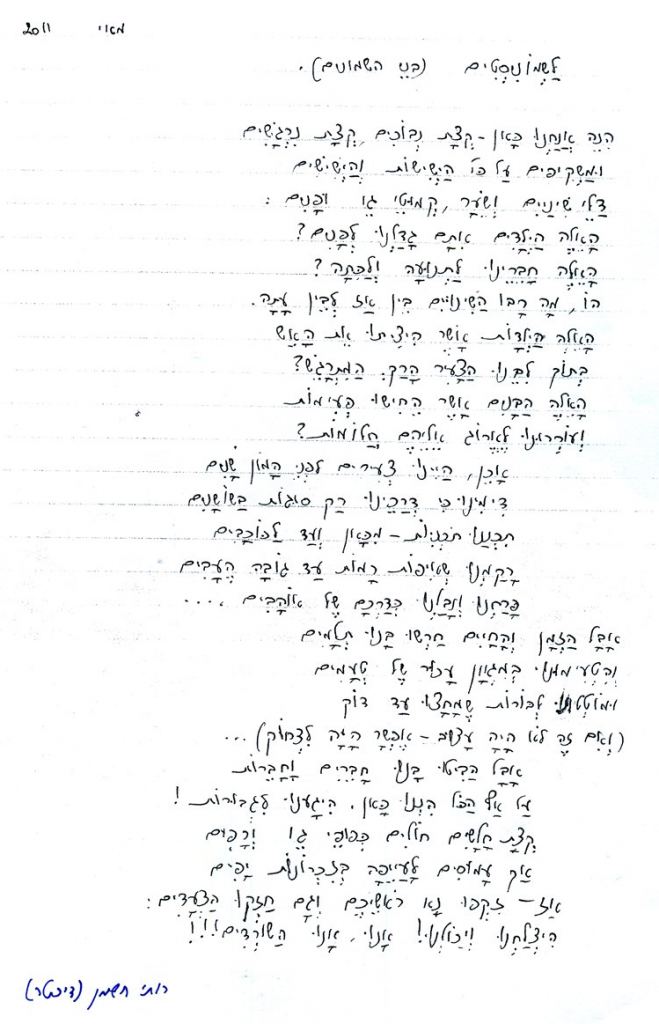 מאי 2011
לַשְׁמוֹנִיסְטִים (בְּנֵי השמונים).
הִנֵּה אֲנַחְנוּ כָּאן - קְצָת נְבוֹכִים, קְצָת נִרְגָּשִׁים
וּמַשְׁקִיפִים עַל כׇּל הַיְשִׁישׁוֹת וְהַיְשִׁישִׁים
דַלֵּי שִׁינַיִים וְשֵׂעָר, קְמוּטֵי גֵו וּפָנִים :
הָאֵלֶּה הַיְלָדִים אִתָּם גָּדַלְנוּ לְפָנִים?
הָאֵלֶּה חֲבֵרֵינוּ לַתְּנוּעָה וְלַכִּתָּה?
הוֹ, מָה רָבּוּ הַשִּׁינּוּיִים בֵּין אָז לְבֵין עָתָּה.
הָאֵלֶּה הַיְלָדוֹת אֲשֶׁר הִיצִּיתוּ אֶת הָאֵשׁ
בְּתוֹךְ לִבֵּנוּ הַצָּעִיר הָרַךְ. הַמִּתְרַגֵּשׁ?
הָאֵלֶּה הַבָּנִים אֲשֶׁר הֶחִישׁוּ פְּעִימוֹת
וְעוֹרְרוּנוּ לֶאֱרוֹג אֲלֵיהֶם חֲלוֹמוֹת?
אָכֵן, הָיִינוּ צְעִירִים לִפְנֵי הָמוֹן שָׁנִים
דִּימִינוּ כִּי דְּרָכֵינוּ רַק סוּגוֹת בַּשּׁוֹשַׁנִּים
תִּכְנַנּוּ תׇּכְנִיּוֹת - מִכָּאן וְעַד לַכּוֹכָבִים
רָקַמְנוּ שְׁאִיפוֹת רָמוֹת עַד גּוֹבַהּ הֶעָבִים
פָּרַחְנוּ וְנָבַלְנוּ כְּדַרְכָּם שֶׁל אוֹהֲבִים ....
אֲבָל הַזְּמַן וְהַחַיִּים חָרְשׁוּ בָּנוּ תְּלָמִים
וְהִטְעִימוּנוּ בְּמִגְוָון עָכוּר שֶׁל טְעָמִים
וּמוֹטַטְנוּ לְבוֹרוֹת שֶׁמָּחֲצוּ עַד דּוֹק
(וְאִם זֶה לֹא הָיָה עָצוּב - אֶפְשָׁר הָיָה לִצְחוֹק) ...
אֲבָל הַבִּיטוּ בָּנוּ חֲבֵרִים וַחֲבֵרוֹת
עַל אַף הַכֹּל הִנְּנוּ כָּאן. הִיגַּעְנוּ לִגְבוּרוֹת !
קְצָת חֲלָשִׁים חוֹלִים כְּפוּפֵי גֵו וְרָפִים
אַךְ עֲמוּסִים לַעֲיֵיפָה בְּזִכְרוֹנוֹת יָפִים
אָז - זִקְפוּ נָא רָאשֵׁיכֶם וְגַם חַזְּקוּ הַצְּעָדִים:
הִיצְלַחְנוּ וְיָכוֹלְנוּ! אָנוּ, אָנוּ הַשּׂוֹרְדִים!!!
רותי חשמן (דיכטר)